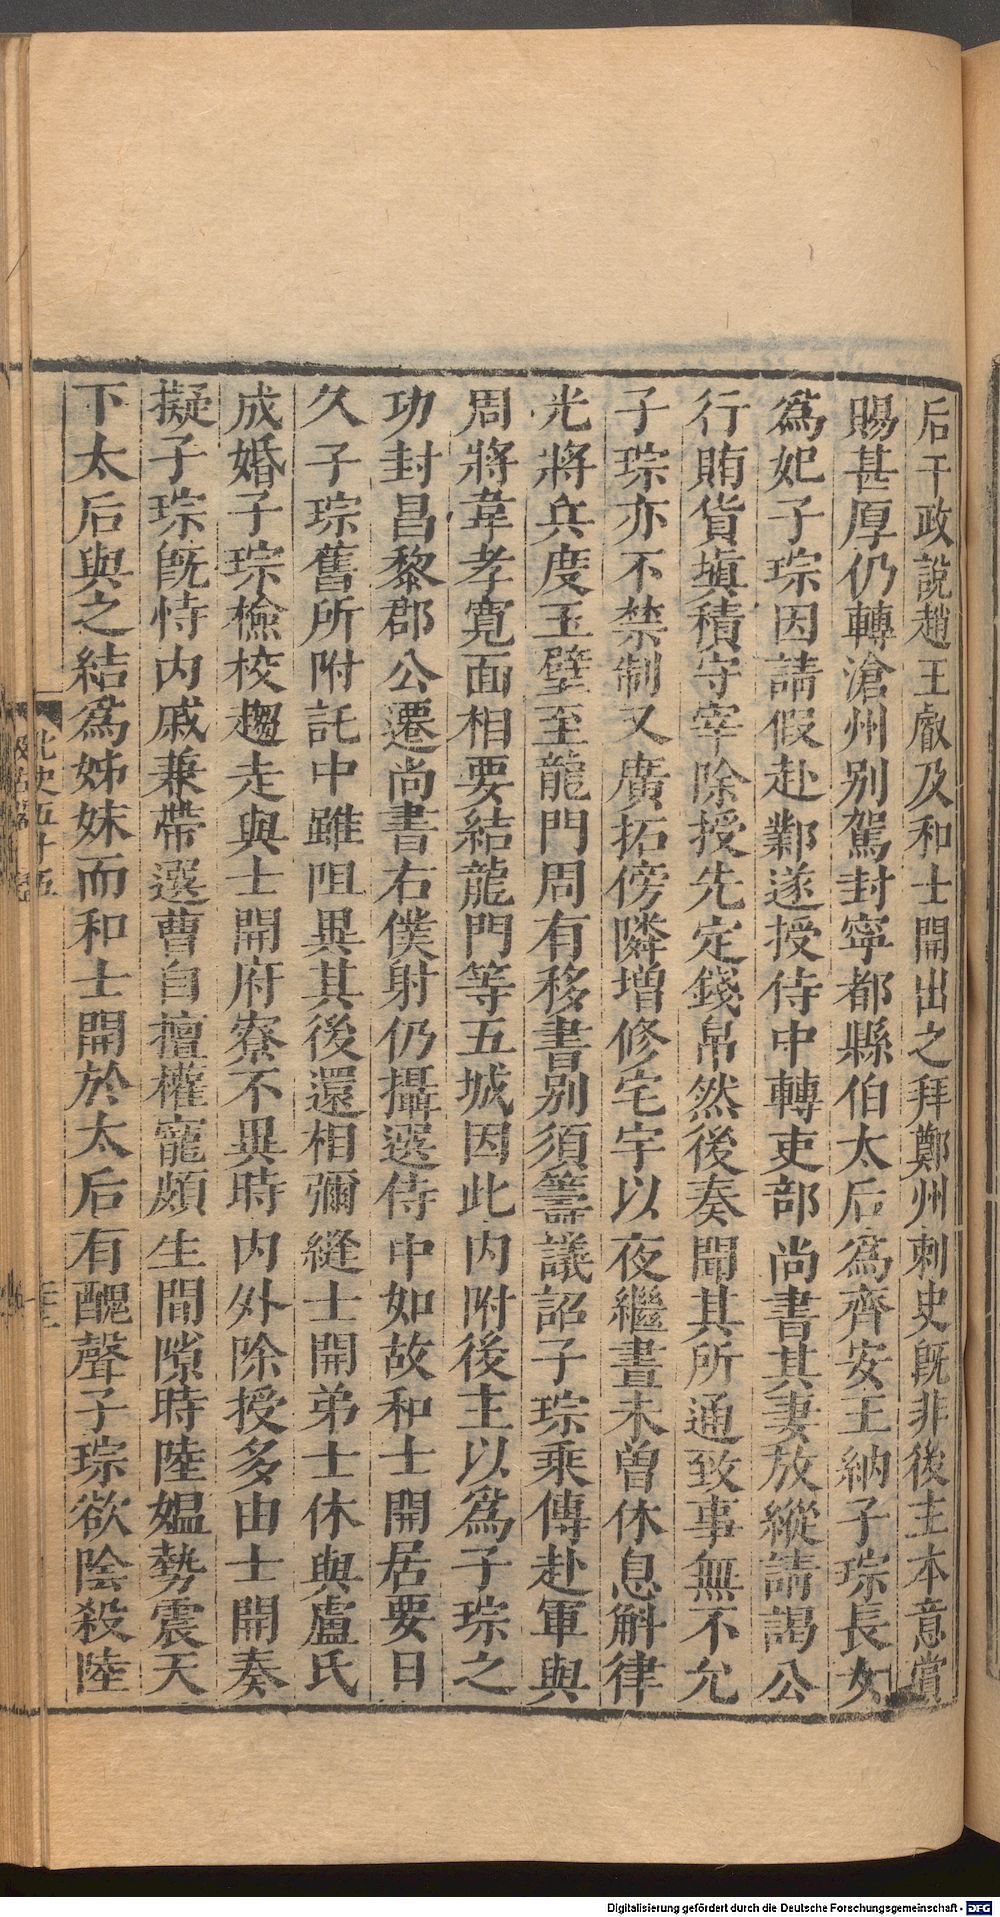 后干政說趙王叡及和士開出之拜鄭州刺史既非後主本意賞
賜甚厚仍轉滄州别駕封寧都縣伯太后爲齊安王納子琮長女
爲妃子琮因請假赴鄴遂授侍中轉吏部尚書其妻放縱請謁公
行賄貨塡積守宰除授先定錢帛然後奏聞其所通致事無不允
子琮亦不禁制又廣拓傍隣增修宅宇以夜繼晝未曾休息斛律
光將兵度玉壁至龍門周有移書别須籌議詔子琮乘傳赴軍與
周將韋孝寬面相要結龍門等五城因此内附後主以爲子琮之
功封昌黎郡公遷尚書右僕射仍攝選侍中如故和士開居要日
久子琮舊所附託中雖阻異其後還相彌縫士開弟士休與盧氏
成婚子琮檢校趨走與士開府寮不異時内外除授多由士開奏
擬子琮既恃内戚兼帶選曹自擅權寵頗生間隙時陸媼勢震天
下太后與之結爲姊妹而和士開於太后有醜聲子琮欲陰殺陸
北史五十五
Digitalisierung gefördert durch die Deutsche Forschungsgemeinschaft - DFG